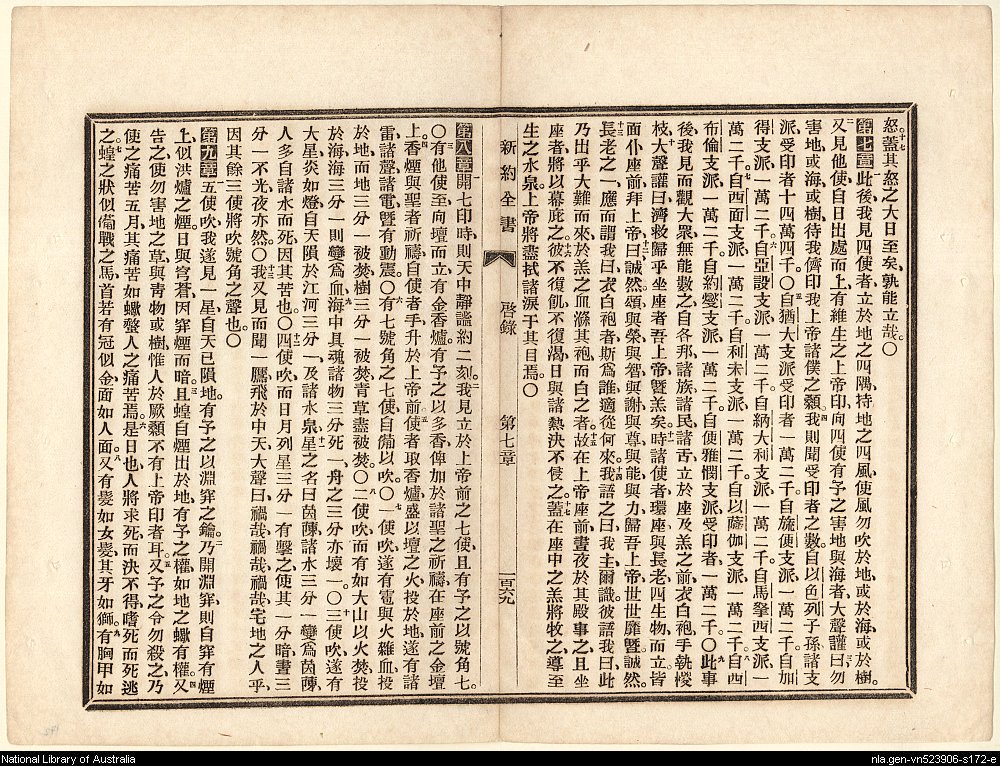 怒蓋其怒之大日至矣孰能立哉〇
第七章此後我見四使者立於地之四隅持地之四風使風勿吹於地或於海或於樹
又見他使自日出處而上有維生之上帝印向四使有予之害地與海者大聲讙曰勿
害地或海或樹待我儕印我上帝諸僕之顙我則聞受印者之數自以色列子孫諸支
派受印者十四萬四千〇自猶大支派受印者一萬二千自旒便支派一萬二千自加
得支派一萬二千自亞設支派一萬二千自納大利支派一萬二千自馬拏西支派一
萬二千自西面支派一萬二千自利未支派一萬二千自以薩伽支派一萬二千自西
布倫支派一萬二千自約瑟支派一萬二千自便雅憫支派受印者一萬二千〇此事
後我見而觀大衆無能數之自各邦諸族諸民諸舌立於座及羔之前衣白袍手執椶
枝大聲讙曰濟救歸乎坐座者吾上帝曁羔矣時諸使者環座與長老四生物而立皆
面仆座前拜上帝曰誠然頌與榮與智與謝與尊與能與力歸吾上帝世世靡曁誠然
長老之一應而謂我曰衣白袍者斯為誰適從何來我語之曰我主爾識彼語我曰此
乃出乎大難而來於羔之血滌其袍而白之者故在上帝座前晝夜於其殿事之且坐
座者將以幕庇之彼不復飢不復渴日與諸熱決不侵之蓋在座中之羔將牧之導至
生之水泉上帝將盡拭諸淚于其目焉〇
新約全書 啓錄 第七章 一百六九
第八章開七印時則天中靜謐約二刻我見立於上帝前之七使且有予之以號角七
〇有他使至向壇而立有金香爐有予之以多香俾加於諸聖之祈禱在座前之金壇
上香煙與聖者祈禱自使者手升於上帝前使者取香爐盛以壇之火投於地遂有諸
雷諸聲諸電曁有動震〇有七號角之七使自備以吹〇一使吹遂有雹與火雜血投
於地而地三分一被焚樹三分一被焚青草盡被焚〇二使吹而有如大山以火焚投
於海海三分一則變爲血海中具魂諸物三分死一舟之三分亦壞一〇三使吹遂有
大星炎如燈自天隕於江河三分一及諸水泉星之名曰茵蔯諸水三分一變爲茵蔯
人多自諸水而死因其苦也〇四使吹而日月列星三分一有擊之使其一分暗晝三
分一不光夜亦然〇我又見而聞一鷹飛於中天大聲曰禍哉禍哉禍哉宅地之人乎
因其餘三使將吹號角之聲也〇
第九章五使吹我遂見一星自天已隕地有予之以淵穽之鑰乃開淵穽則自穽有煙
上似洪爐之煙日與穹蒼因穽煙而暗且蝗自煙出於地有予之權如地之蠍有權又
告之使勿害地之草與靑物或樹惟人於厥顙不有上帝印者耳又予之令勿殺之乃
使之痛苦五月其痛苦如蠍螫人之痛苦焉是日也人將求死而決不得嗜死而死逃
之蝗之狀似備戰之馬首若有冠似金面如人面又有髮如女髮其牙如獅有胸甲如
National Library of Australia
nla.gen-vn523906-s172-e